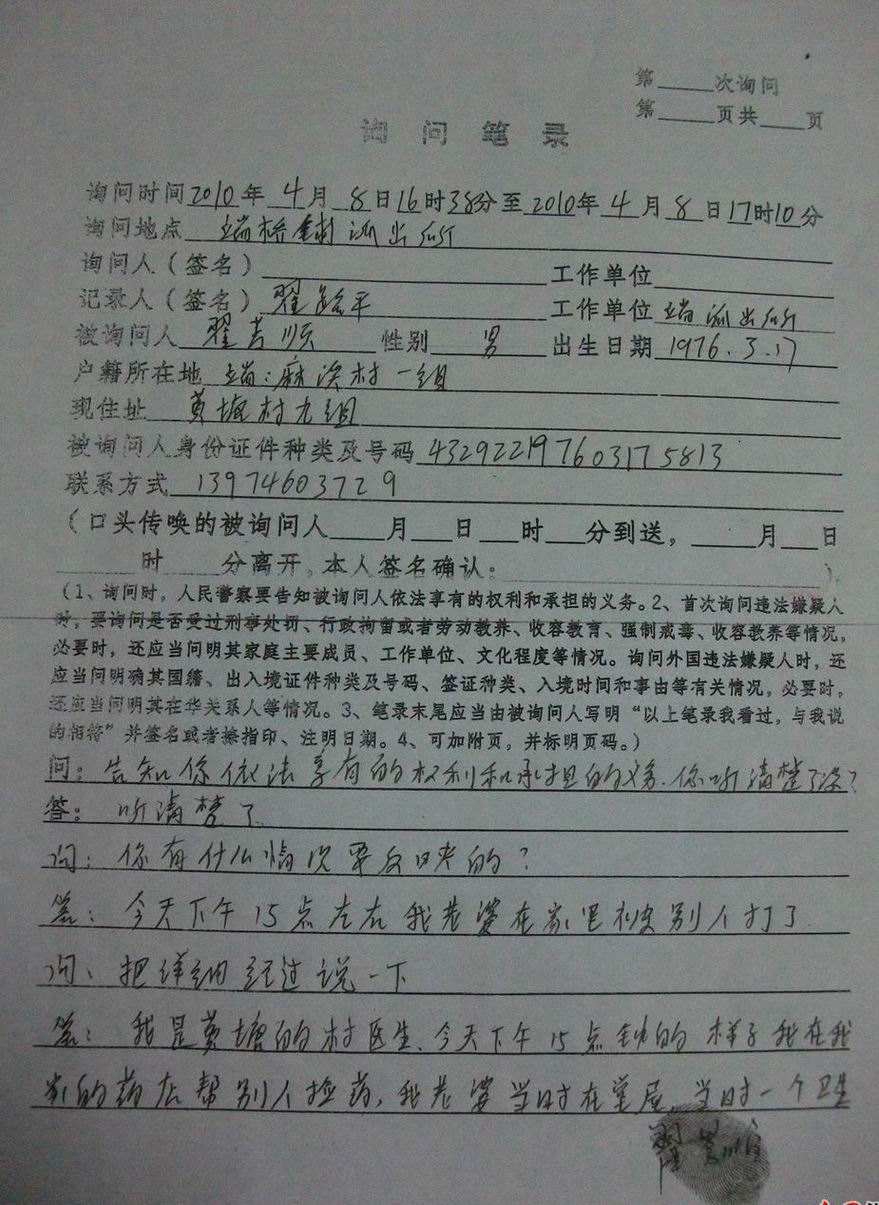 第____次询问
第____页共____页
询问笔录
询问时间2010年4月8日16时38分至2010年4月8日17时10分
询问地点 端桥铺派出所
询问人（签名）____工作单位____
记录人（签名）翟 平 工作单位 端派出所
被询问人 翟 顺 性别 男 出生日期 1976.3.17
户籍所在地 端：麻溪村一组
现住址 黄塘村九组
被询问人身份证件种类及号码 432922197603175813
联系方式 13974603729
（口头传唤的被询问人____月___日___时___分到送，____月___日
____时____分离开，本人签名确认：____）
（1、询问时，人民警察要告知被询问人依法享有的权利和承担的义务。2、首次询问违法嫌疑人
时，要询问是否受过刑事处罚、行政拘留或者劳动教养、收容教育、强制戒毒、收容教养等情况，
必要时，还应当问明其家庭主要成员、工作单位、文化程度等情况。询问外国违法嫌疑人时，还
应当问明确其国籍、出入境证件种类及号码、签证种类、入境时间和事由等有关情况，必要时，
还应当问明其在华关系人等情况。3、笔录末尾应当由被询问人写明“以上笔录我看过，与我说
的相符”并签名或者捺指印、注明日期。4、可加附页，并标明页码。）
问：告知你依法享有的权利和承担的义务.你听清楚了没？
答：听清楚了
问：你有什么情况要反映的？
答：今天下午15点左右我老婆在家里被别人打了
问：把详细经过说一下
答：我是黄塘的村医生、今天下午15点钟的样子我在我
家的药店帮别人捡药，我老婆当时在堂屋，当时一个卫生